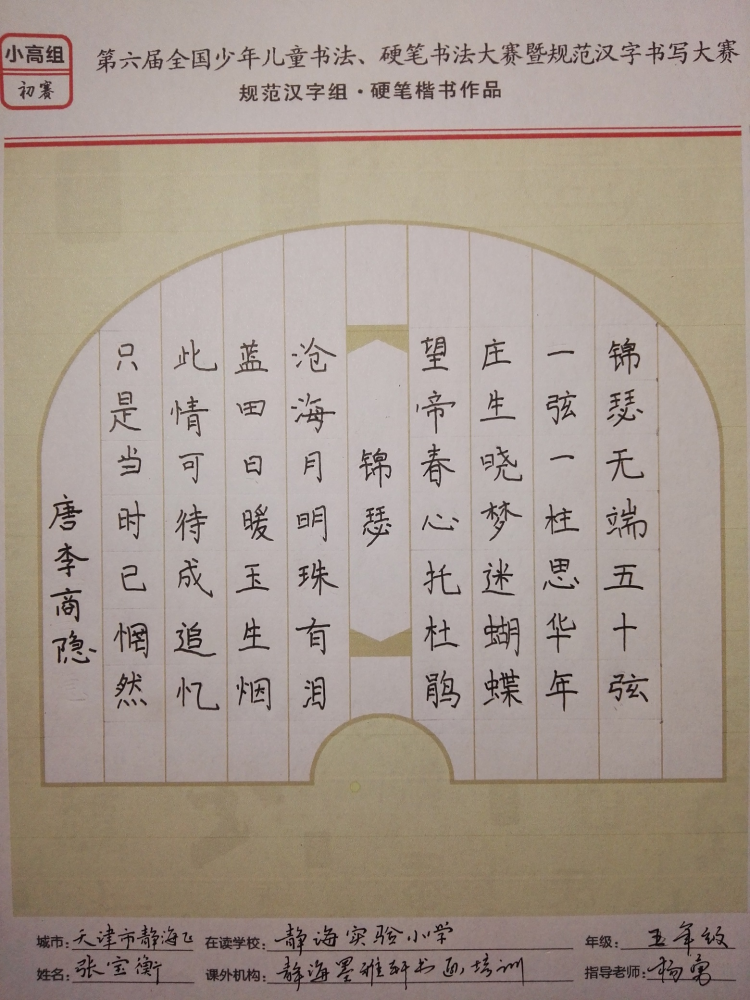 小高组
初赛
第六届全国少年儿童书法、硬笔书法大赛暨规范汉字书写大赛
规范汉字组·硬笔楷书作品
锦瑟无端五十弦
一弦一柱思华年
庄生晓梦迷蝴蝶
望帝春心托杜鹃
锦瑟
沧海月明珠有泪
蓝田日暖玉生烟
此情可待成追忆
只是当时已惘然
唐李商隐
城市：天津市静海 在读学校：静海实验小学 年级：五年级
姓名：张宝衡 课外机构：静海墨雅轩书画培训 指导老师：杨勇